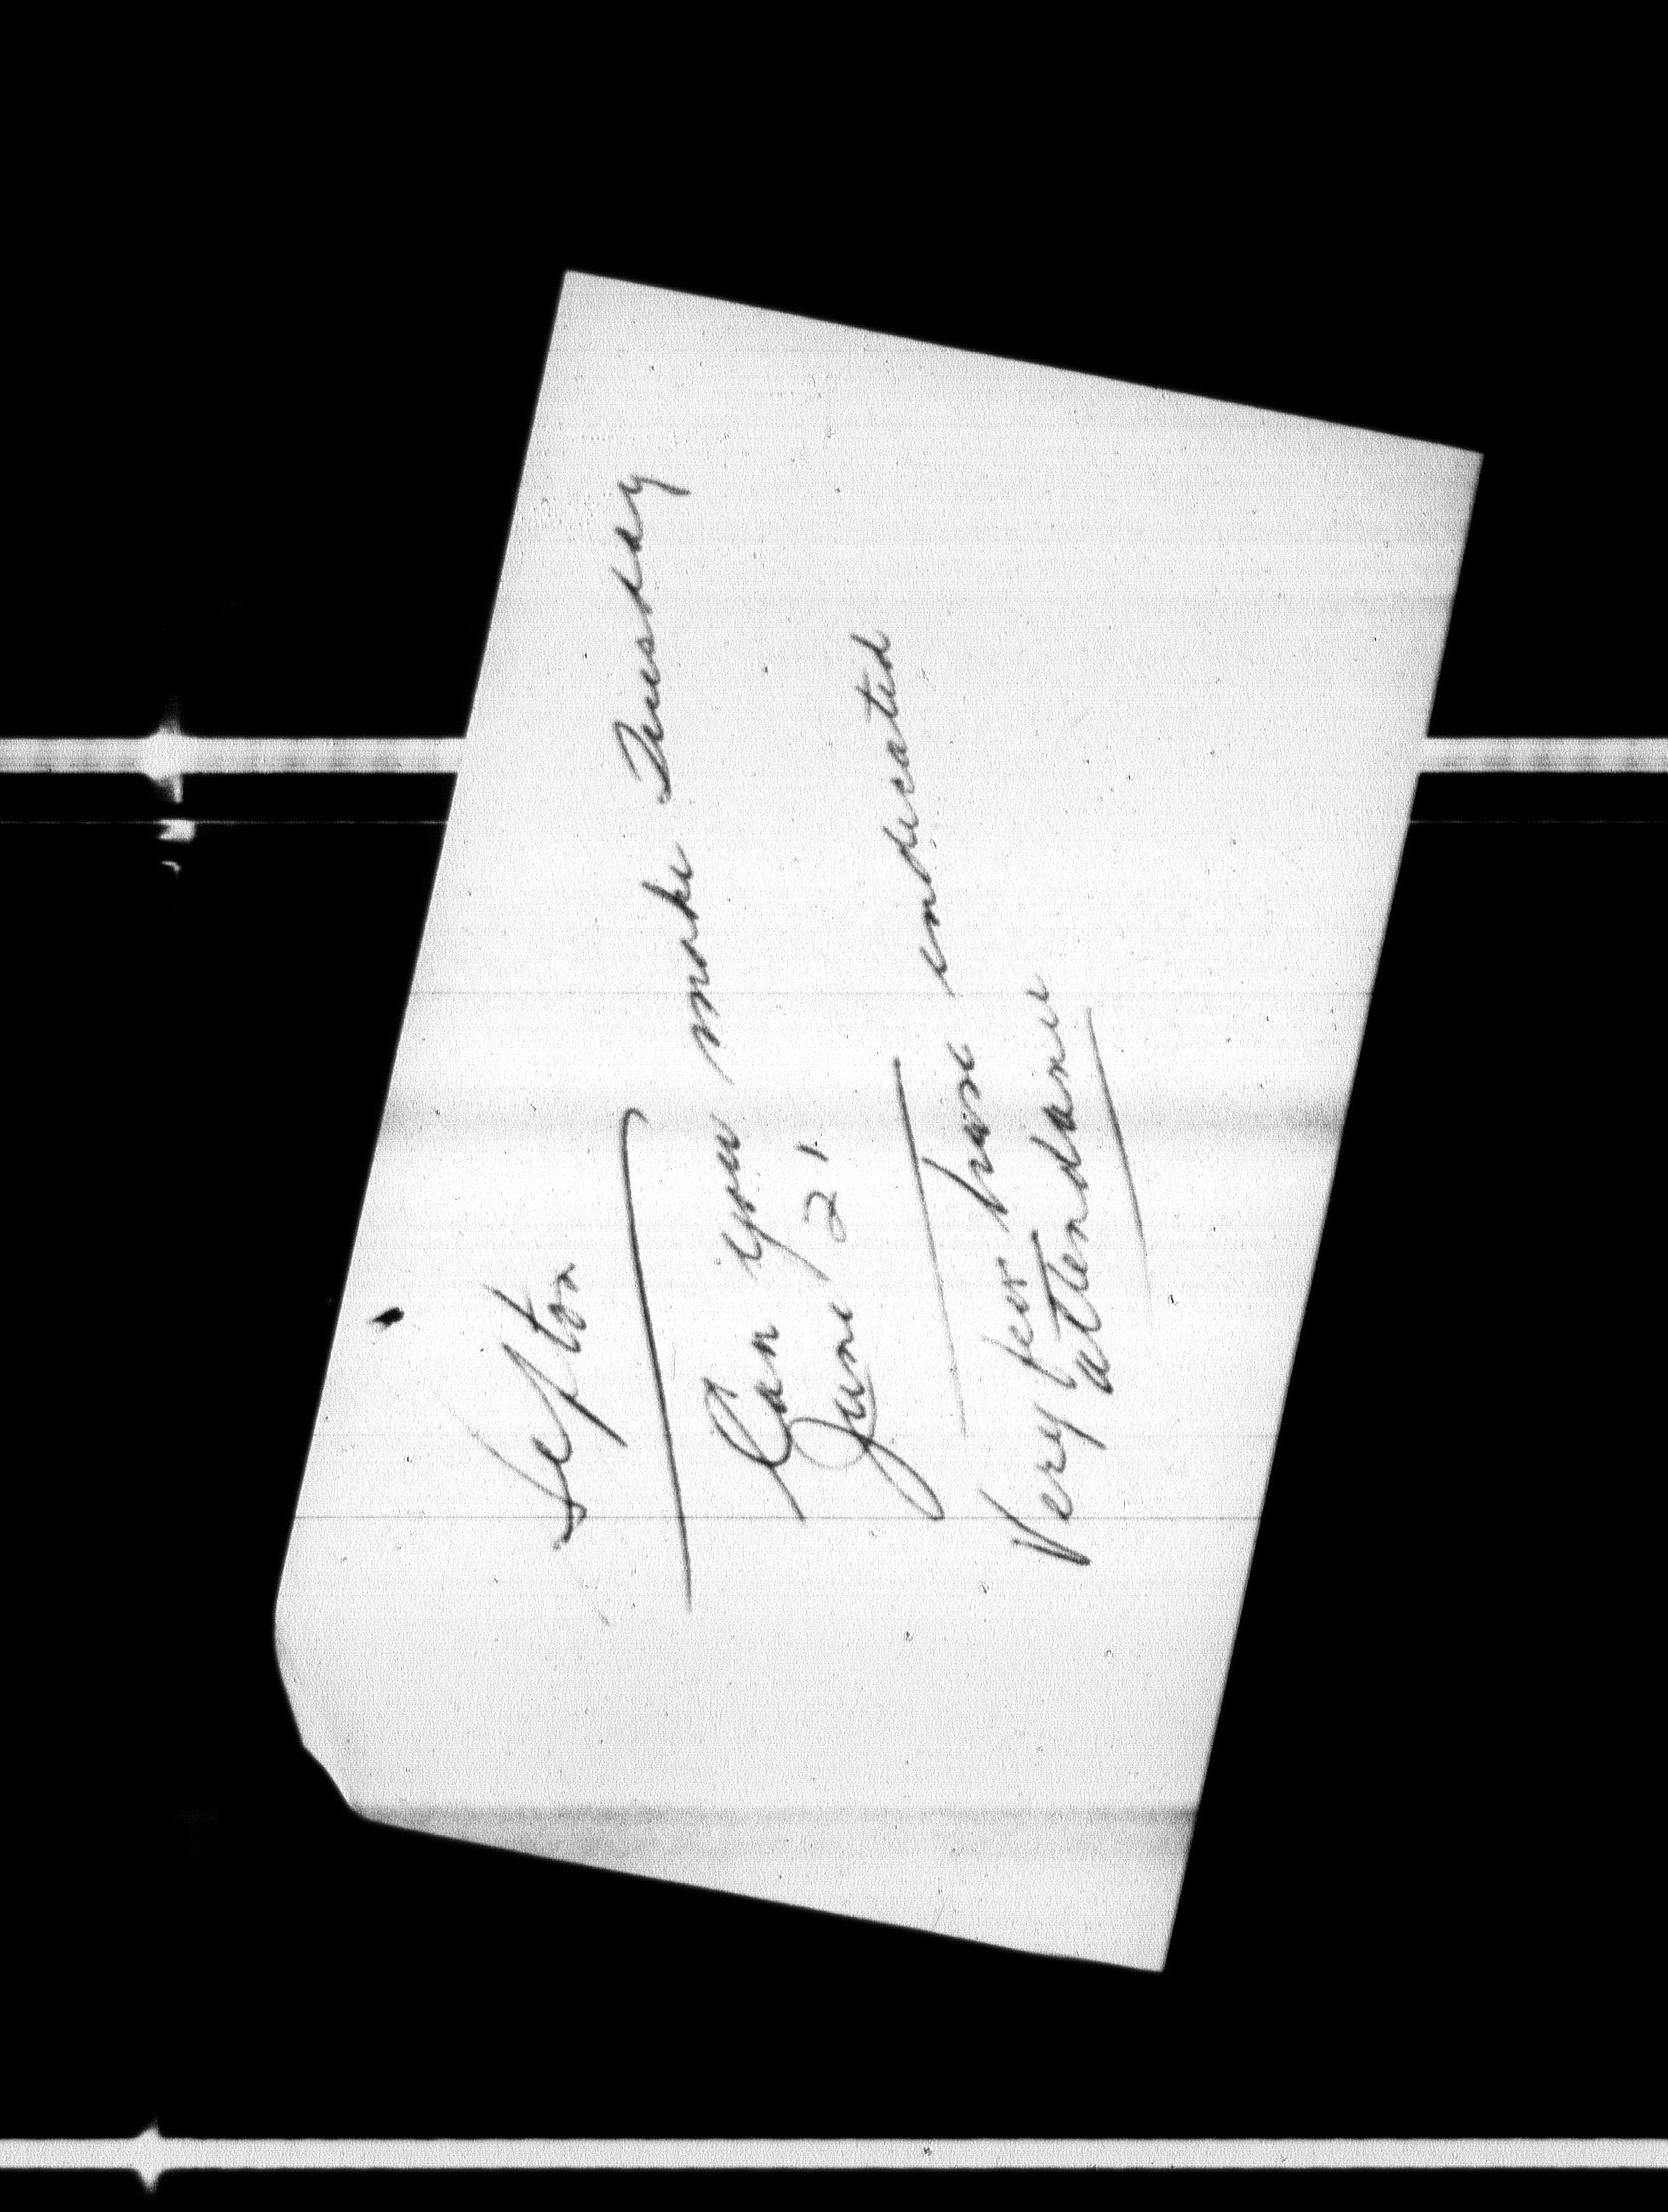 Sefton
Can you make Tuesday
June 21.
Very few have indicated
attendance